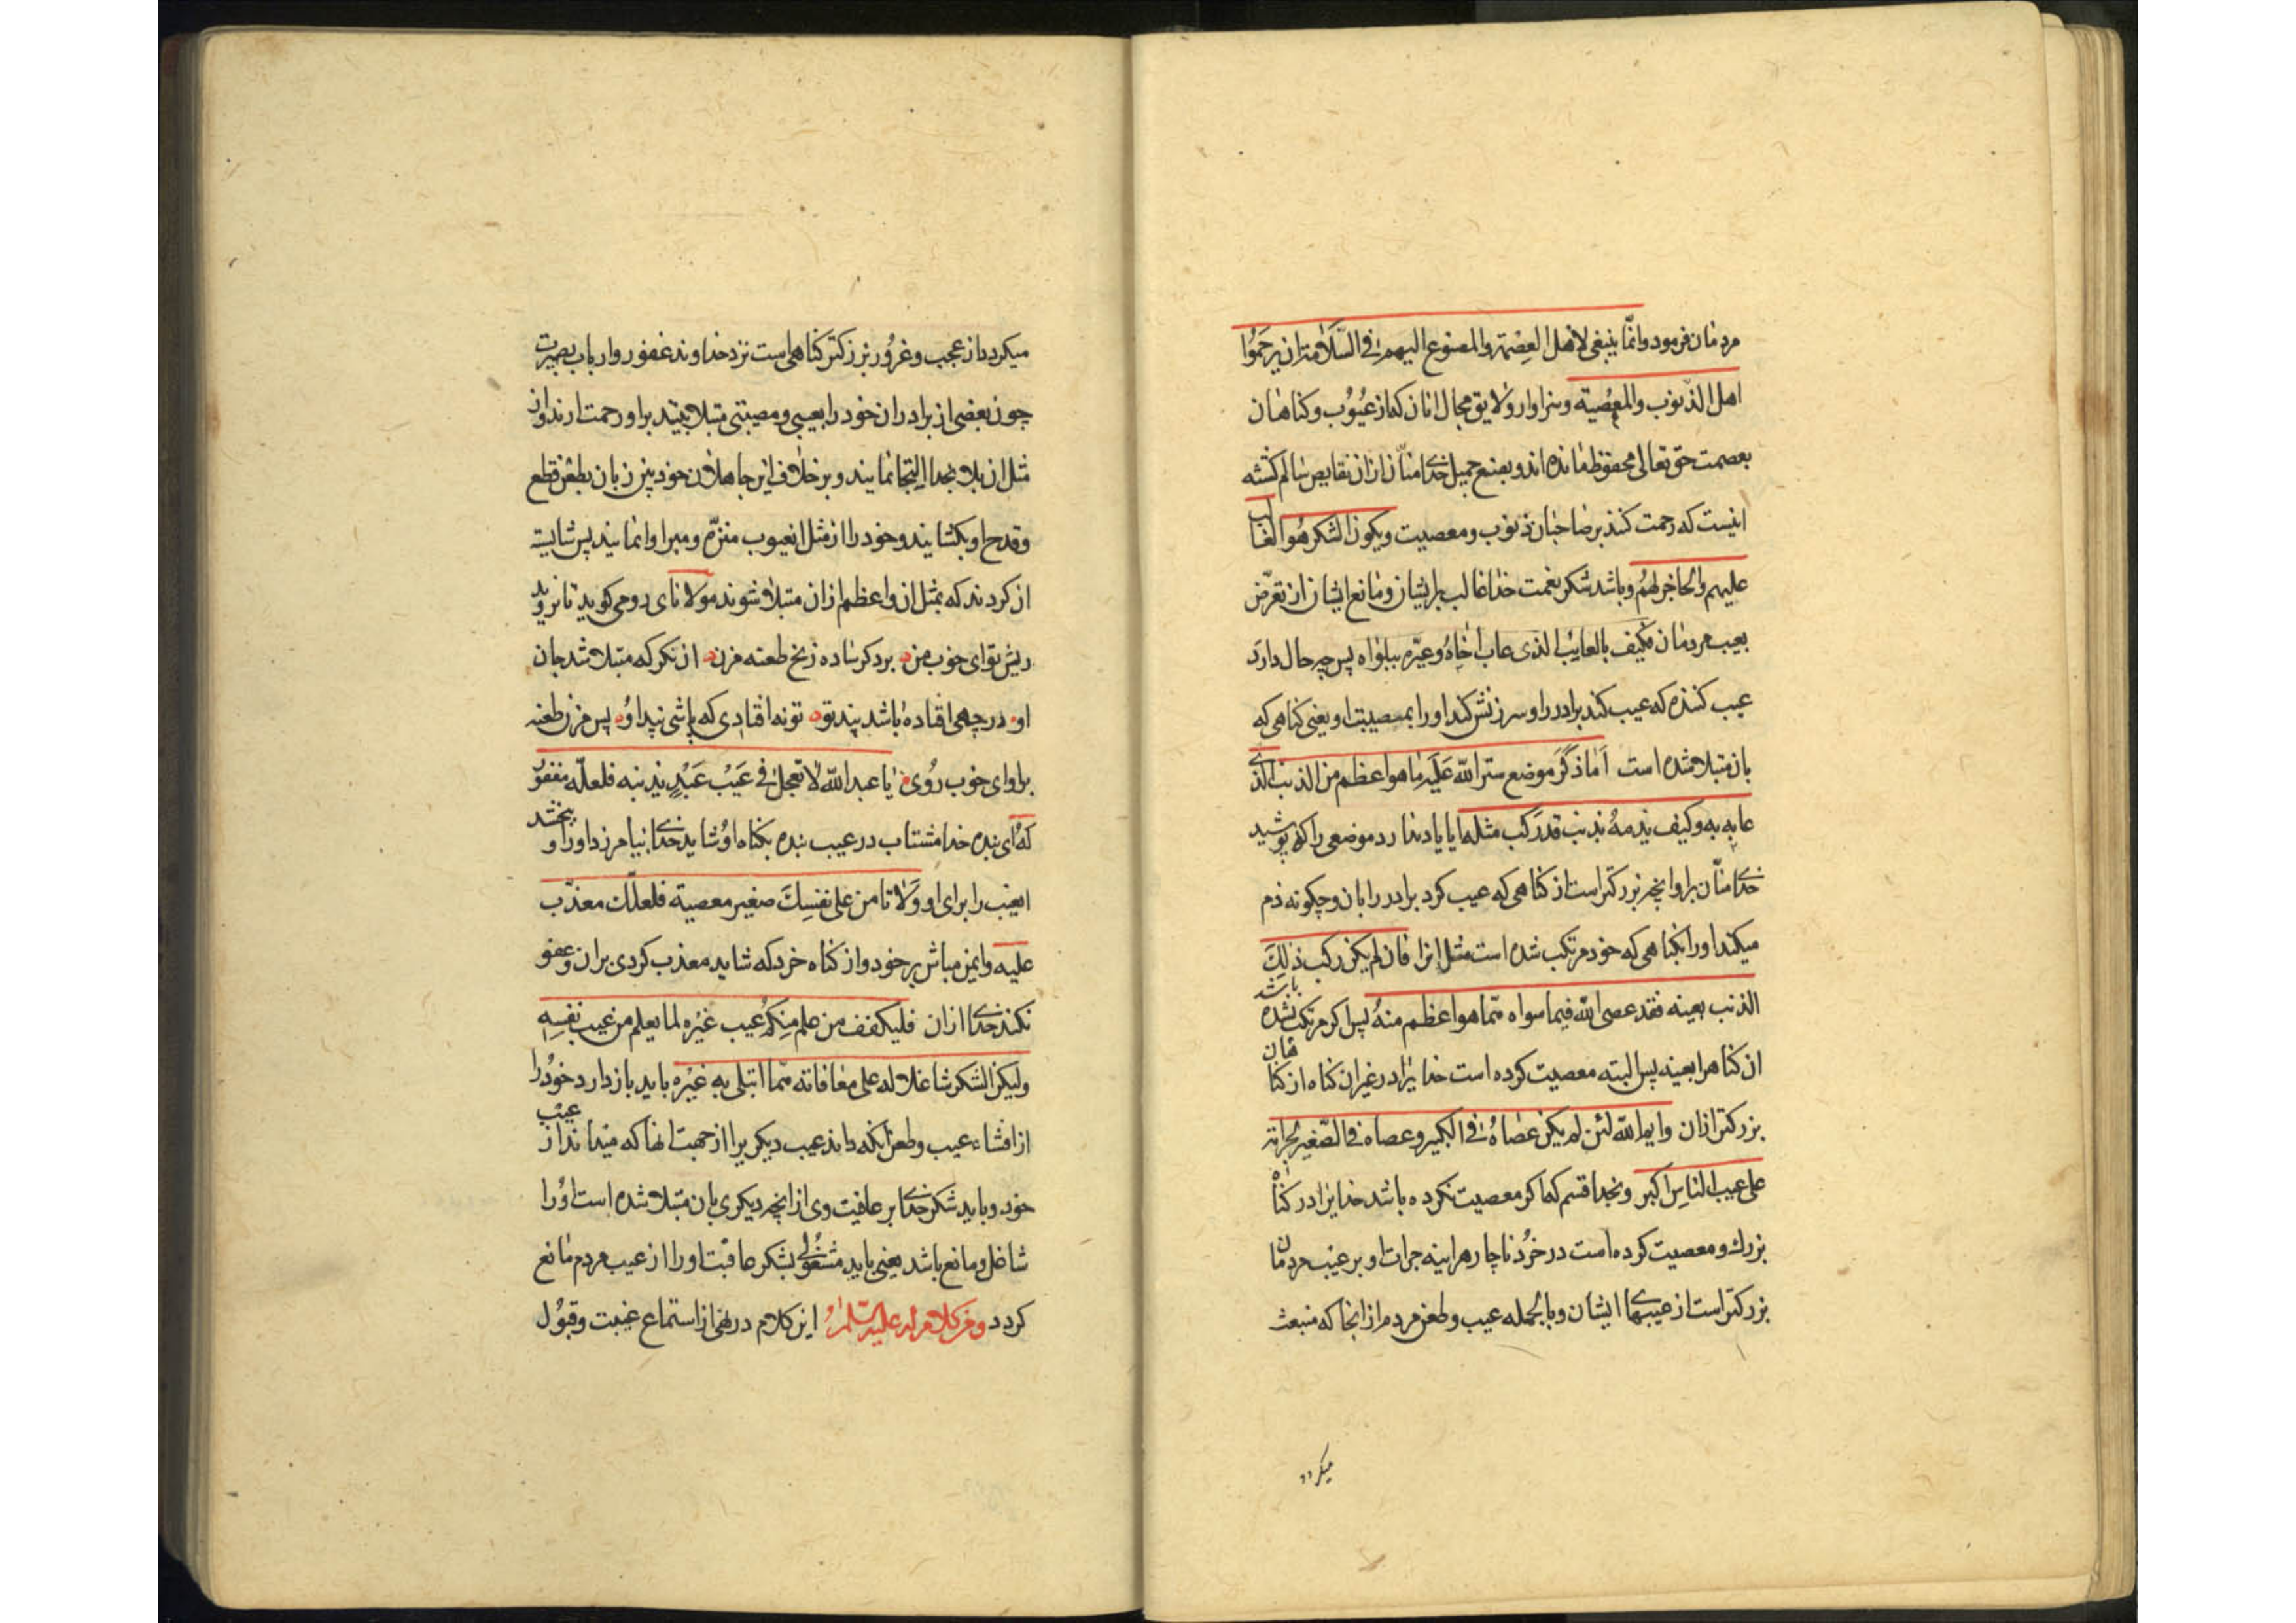 مردمان فرمود وانّما ینبغی لاهل العِصْمة والمصنوع الیهم فی السّلامة ان یرحَمُوا
اهل الذّنوب والمعصیة وسزاوار ولایق بحال انان که از عُیُوب وکناهان
بعصمت حق تعالی محفوظ مانده اند وبصنع جمیل خدای منّان از ان نقایص سالم کشته
اینست که رحمت کنند بر صاحبان ذنوب ومعصیت ویکون الشکر هُوالغالب
علیهم والحاجز لهُم وباشد شکر نعمت خدا غالب بر ایشان ومانع ایشان از تعرّض
بعیب مردمان فکیف بالعایب الذی عاب اخاهُ وعیّره ببلواه پس چه حال دارد
عیب کننده که عیب کند برادر را وسرزنش کند او را بمصیبت او یعنی کناهی که
بان مبتلا شده است اَمَا ذکَرَ موضع ستر الله عَلَیه ما هو اعظم من الذنب الذی
عابه به وکیف یذمهُ بذنب قد رکب مثله ایا یاد ندارد موضعی را که پوشید
خدای منّان بر او انچه بزرکتر است از کناهی که عیب کرد برادر را بان وچکونه ذم
میکند او را بکناهی که خود مرتکب شده است مثل انرا فان لم یکن رکب ذلِکَ
الذنب بعینه فقد عصی الله فیما سواه ممّا هو اعظم منهُ پس اکر مرتکب نشده باشد
ان کناهرا بعینه پس البته معصیت کرده است خدایرا در غیر ان کناه از کناهان
بزرکتر از ان وایم الله لئن لم یکن عصاهُ فی الکبیر وعصاه فی الصّغیر لجراته
علی عیب الناس اکبر وبخدا قسم که اکر معصیت نکرده باشد خدایرا در کناه
بزرك ومعصیت کرده است در خُرد ناچار هراینه جرات او بر عیب مردمان
بزرکتر است از عیبهای ایشان وبالجمله عیب وطعن مردم از انجا که منبعث
میکردد
میکردد از عجب وغُرور بزرکتر کناهی است نزد خداوند غفور وارباب بصیرت
چون بعضی از برادران خود را بعیبی ومصیبتی مبتلا بینند بر او رحمت ارند واز
مثل ان بلا بخدا التجا نمایند وبر خلاف این جاهلان خود بین زبان بطعن قطع
وقدح او بکشایند وخود را از مثل ان عیوب منزّه ومبرا وانمایند پس شایسته
ان کردند که بمثل ان واعظم از ان مبتلا شوند مولانای رومی کوید تا نروید
ریش تو ای خوب من بر دکر ساده زنخ طعنه مزن ان نکر که مبتلا شد جان
او در چهی افتاده باشد پند تو تو نه افتادی که باشی پند اوُ پس مزن طعنه
بر او ای خوب رُوی یا عبد الله لا تعجل فی عَیْب عَبْدٍ بذنبه فلعلّه مغفور
لهُ ای بنده خدا مشتاب در عیب بنده بکناه اوُ شاید خدای بیامرزد او را وبخشد
انعیب را برای او وَلا تامن علی نفسِكَ صغیر معصیة فلعلّك معذّب
علیه وایمن مباش بر خود از کناه خرد که شاید معذب کردی بران وعفو
نکند خدای از ان فلیکفف من علم مِنکمُ عیب غَیْره لما یعلم من عیب نفسِهِ
ولیکن الشکر شاغلا له علی معافاته ممّا ابتلی به غَیْره باید باز دارد خودُ را
از افشاء عیب وطعن انکه داند عیب دیکریرا از جهت انها که میداند از عیب
خود وباید شکر خدای بر عافیت وی از انچه دیکری بان مبتلا شده است اوُرا
شاغل ومانع باشد یعنی باید مشغُولی بشکر عافیت او را از عیب مردم مانع
کردد ومن کلام له علیه السّلامُ این کلام در نهی از استماع غیبت وقبُول